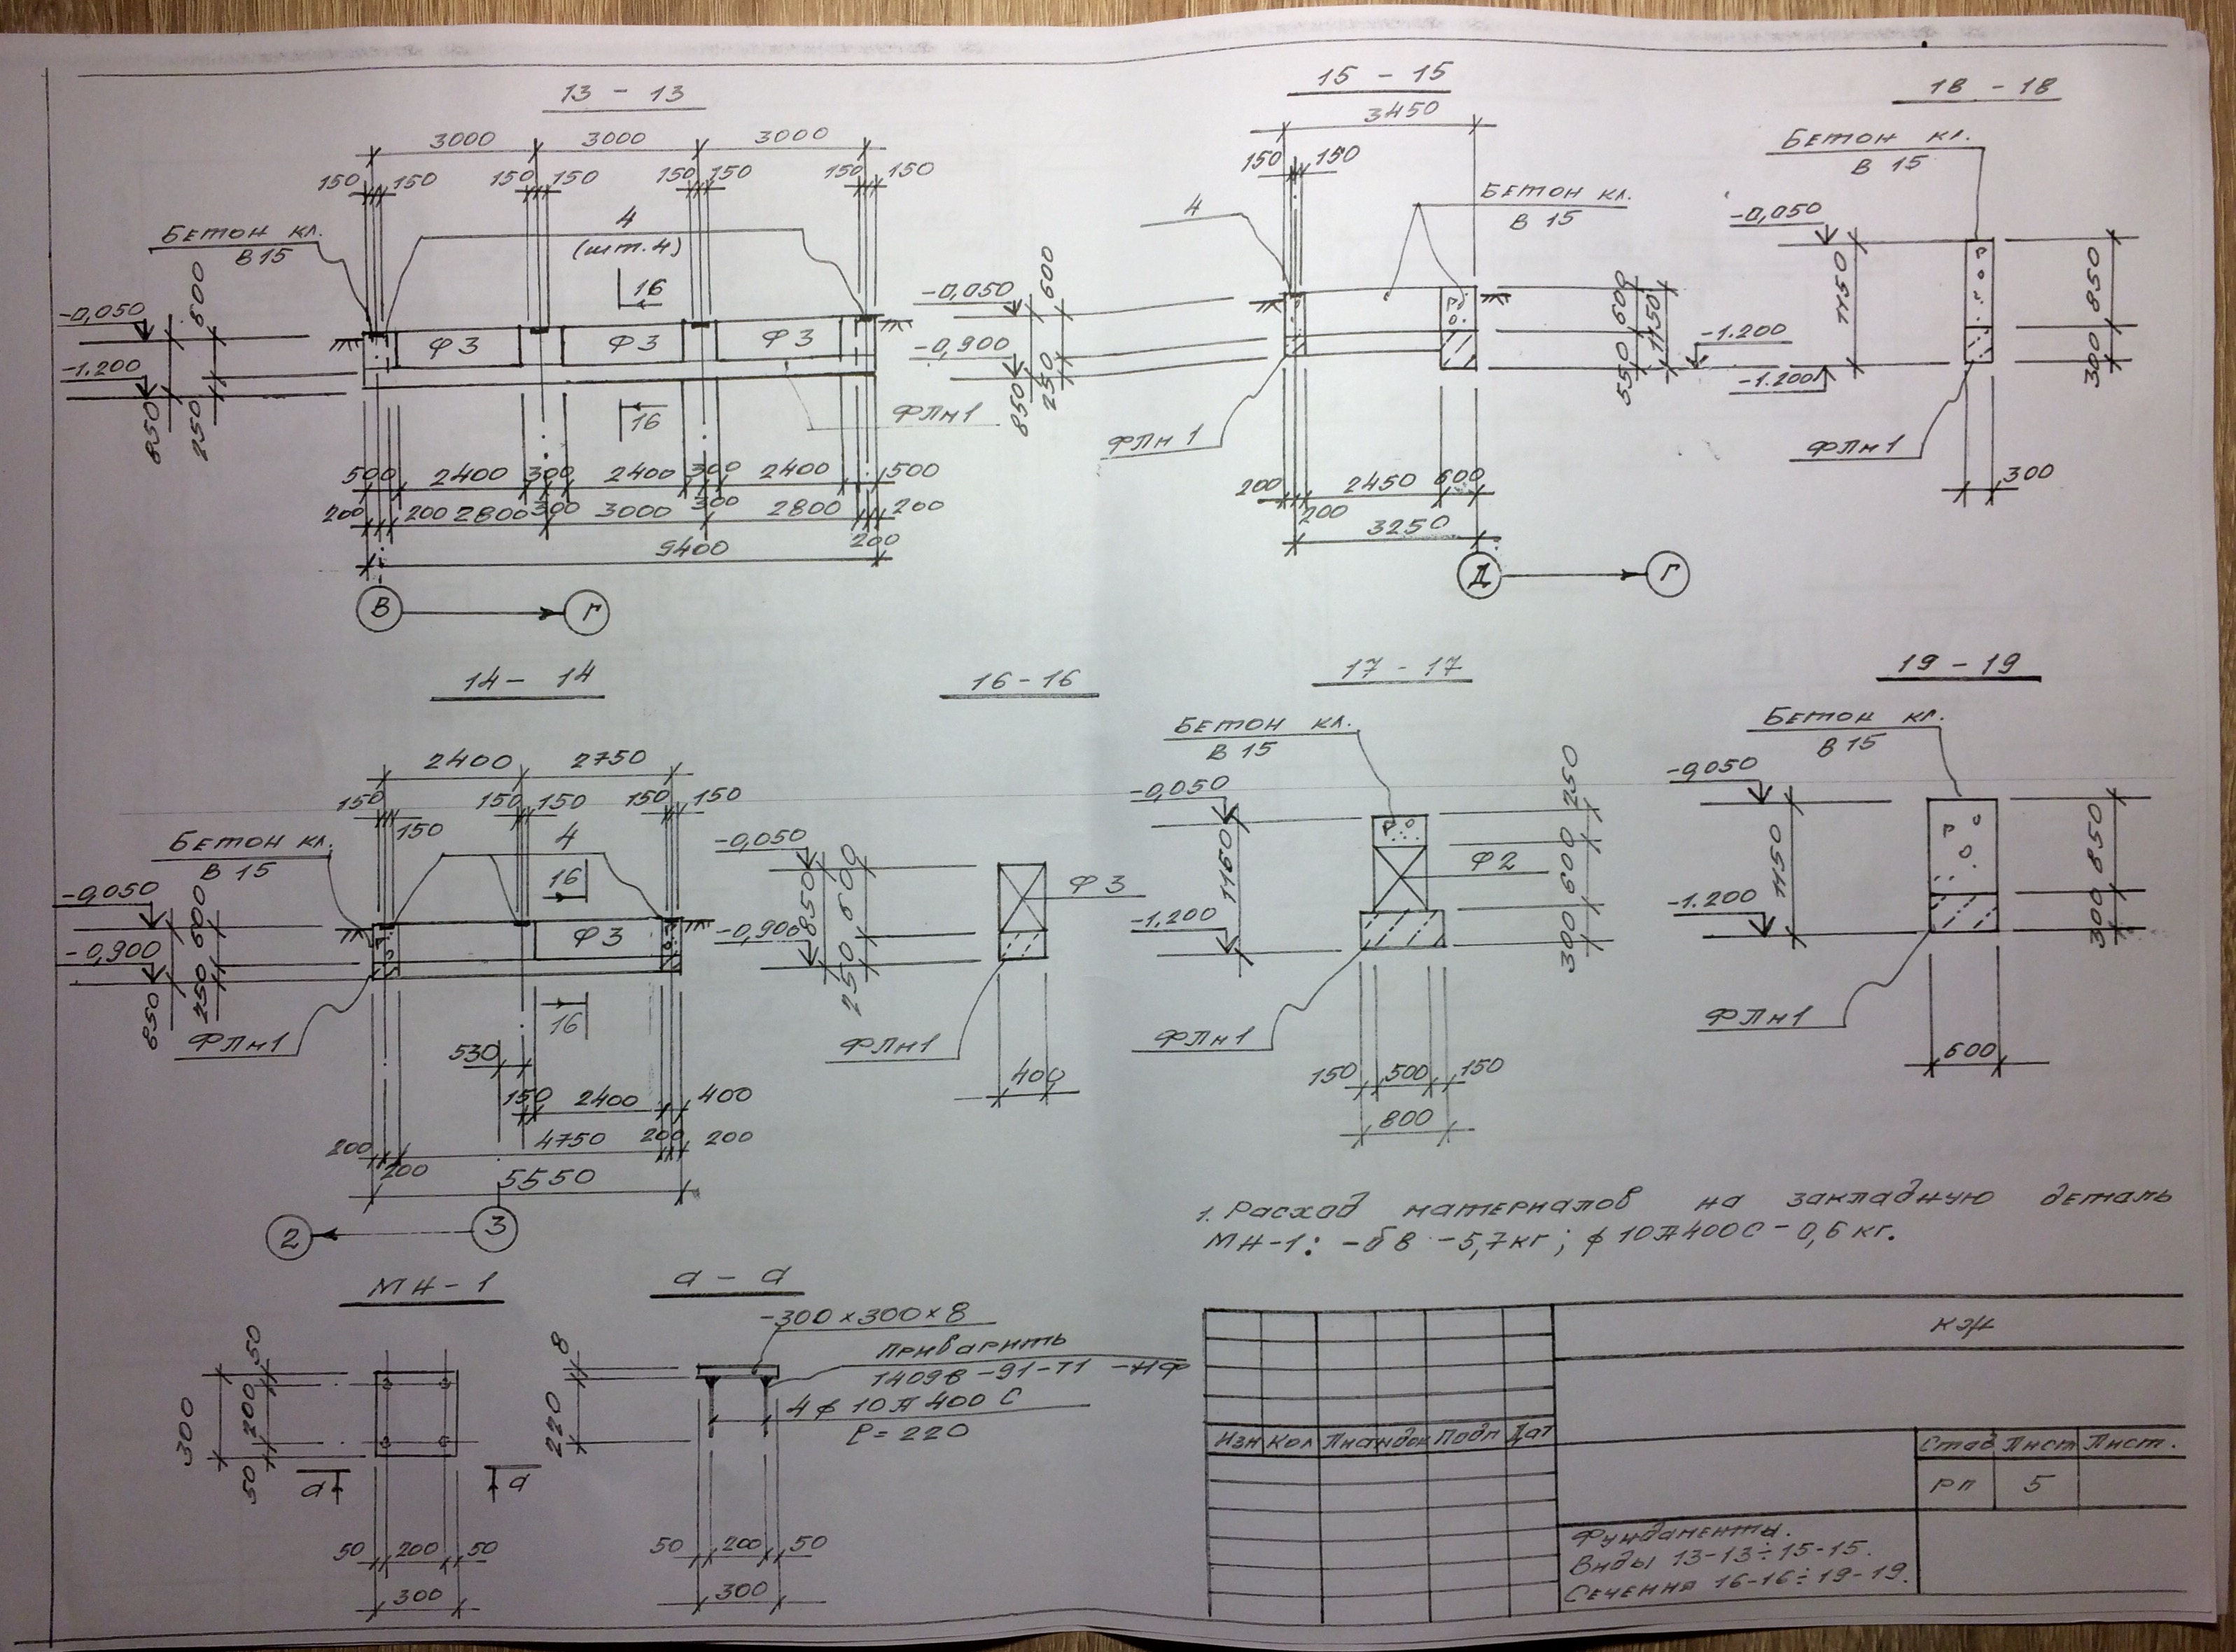 13 - 13
3000 3000 3000
150 150 150 150 150 150 150 150
БЕТОН КЛ.
В15
4
(шт.4)
16
-0,050
600
-1.200
850
250
Ф3 Ф3 Ф3
16
ФПм1
-0,050
600
-0,900
850
250
500 2400 300 2400 300 2400 500
200 200 2800 300 3000 300 2800 200
200
9400
В Г
15 - 15
3450
150 150
4
БЕТОН КЛ.
В 15
600
550
1150
-1.200
ФПм1
200 2450 600
200
3250
Д Г
18 - 18
БЕТОН КЛ.
В 15
-0,050
1150
850
300
-1.200
ФПм1
300
14 - 14
2400 2750
150 150 150 150 150
150
БЕТОН КЛ.
В 15
4
16
-0,050
600
-0,900
250
850
Ф3
ФПм1
16
530
150 2400 400
4750 200 200
200 200
5550
2 3
16 - 16
-0,050
600
850
-0,900
250
Ф3
ФПм1
400
17 - 17
БЕТОН КЛ.
В 15
-0,050
250
1160
600
Ф2
-1.200
300
ФПм1
150 500 150
800
19 - 19
БЕТОН КЛ.
В 15
-0,050
1150
850
-1.200
300
ФПм1
600
1. Расход материалов на закладную деталь
МН-1: -δ8 -5,7кг; ϕ10А400С - 0,6кг.
МН - 1
50
200
300
50
а а
50 200 50
300
а - а
-300×300×8
8
Приварить
1409В -91-Т1 -НФ
220
4ϕ10А400С
ℓ=220
50 200 50
300
КЖ
Изм Кол Лист Nдок Подп Дат
Стад Лист Лист.
РП 5
Фундаменты.
Виды 13-13÷15-15.
Сечения 16-16÷19-19.